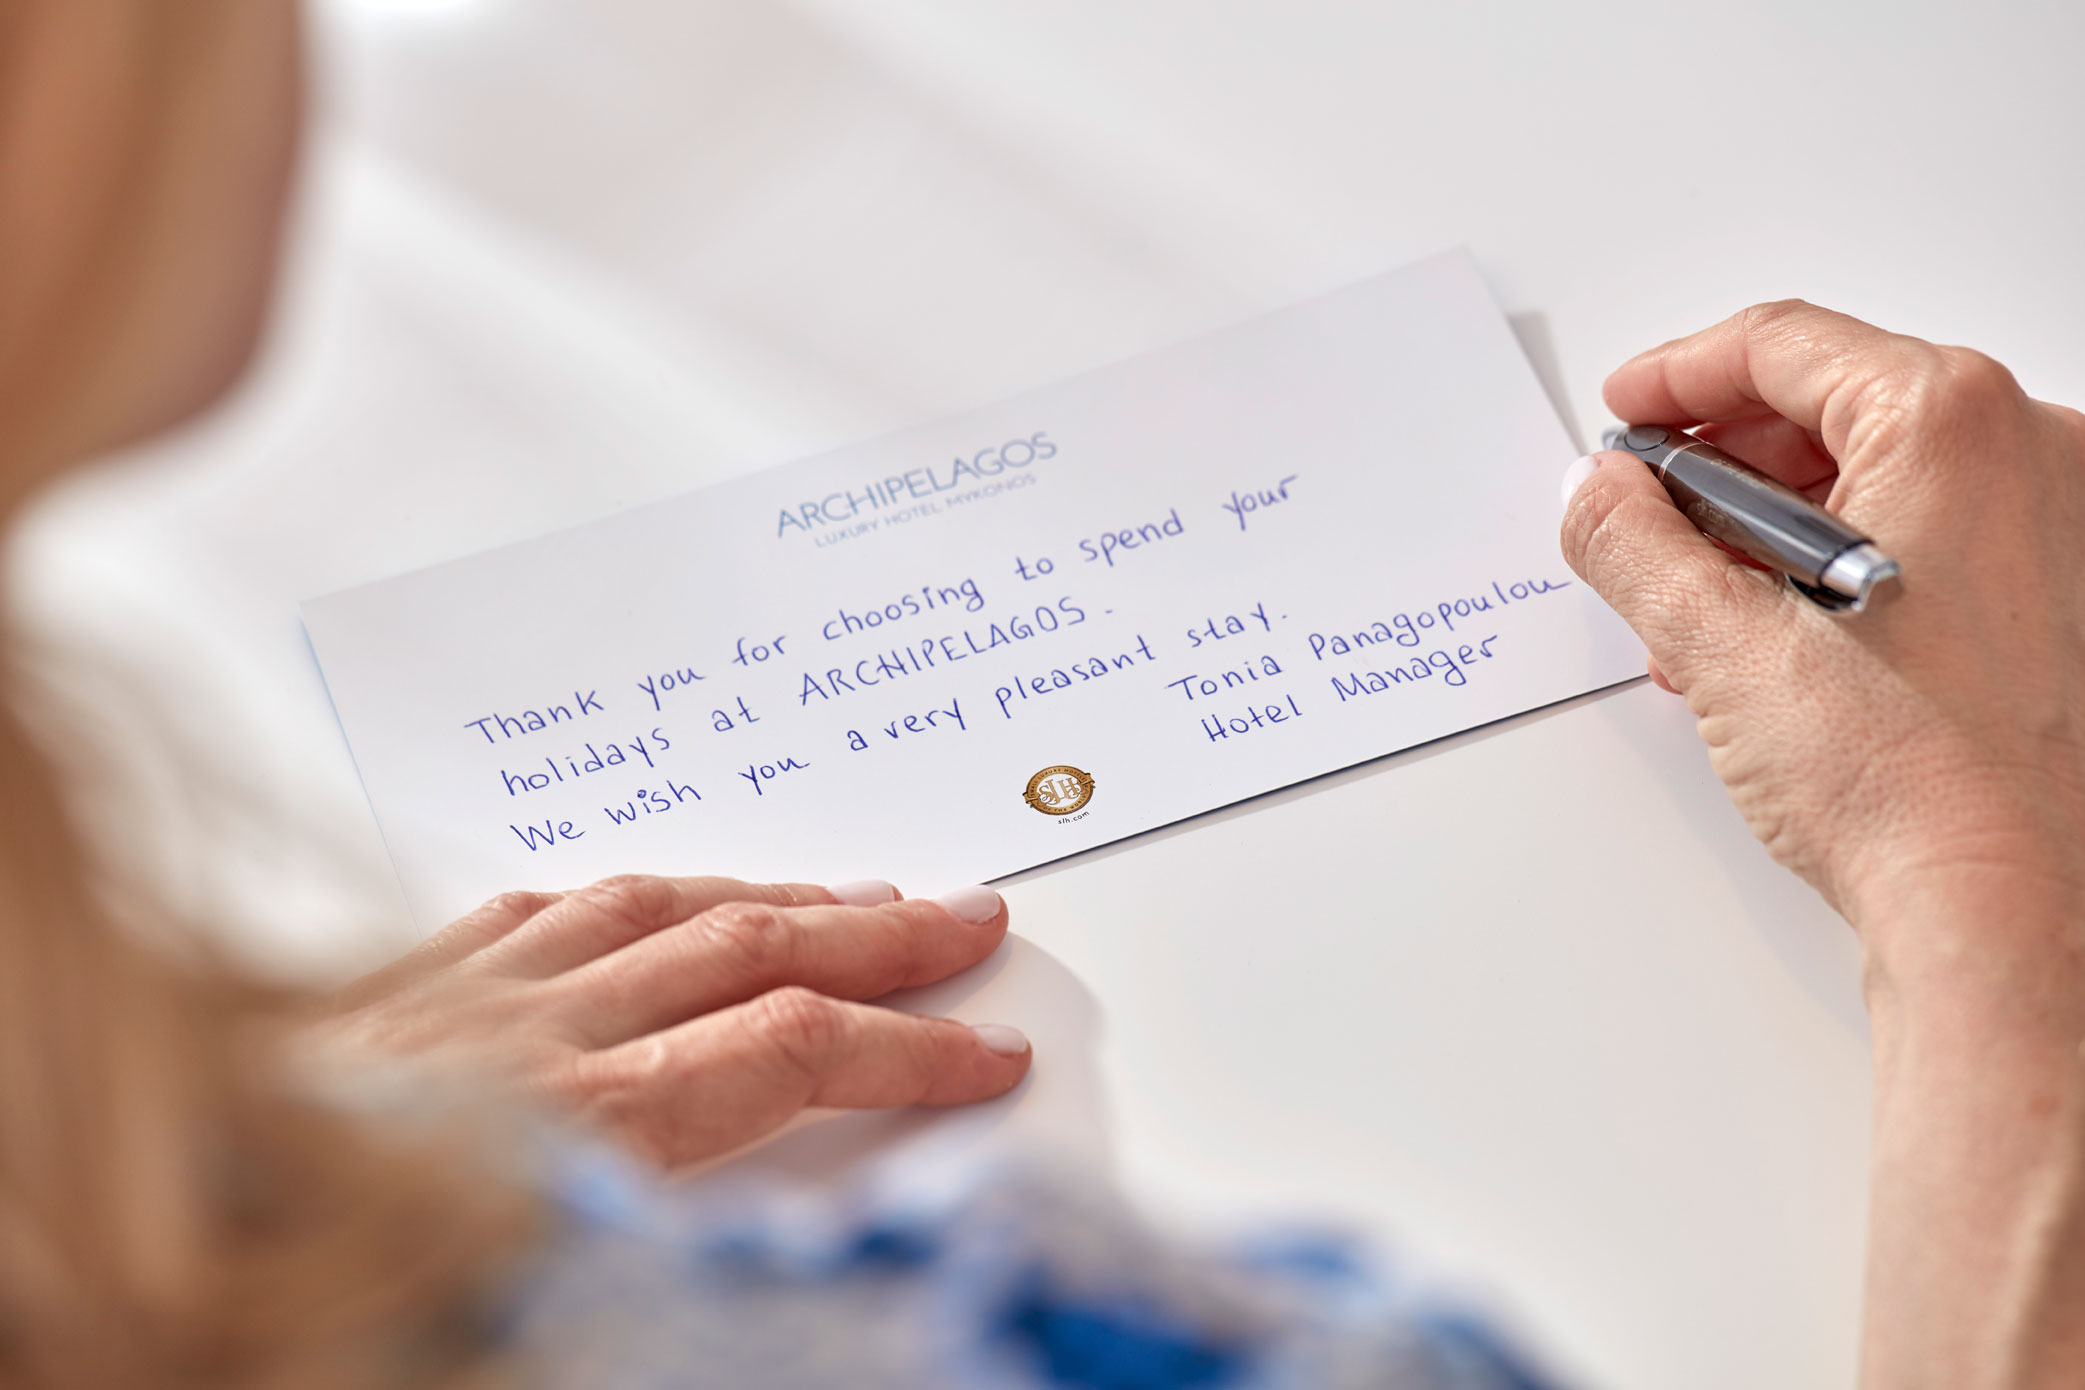 ARCHIPELAGOS
LUXURY HOTEL MYKONOS
Thank you for choosing to spend your
holidays at ARCHIPELAGOS.
We wish you a very pleasant stay.
Tonia Panagopoulou
Hotel Manager
SLH
slh.com